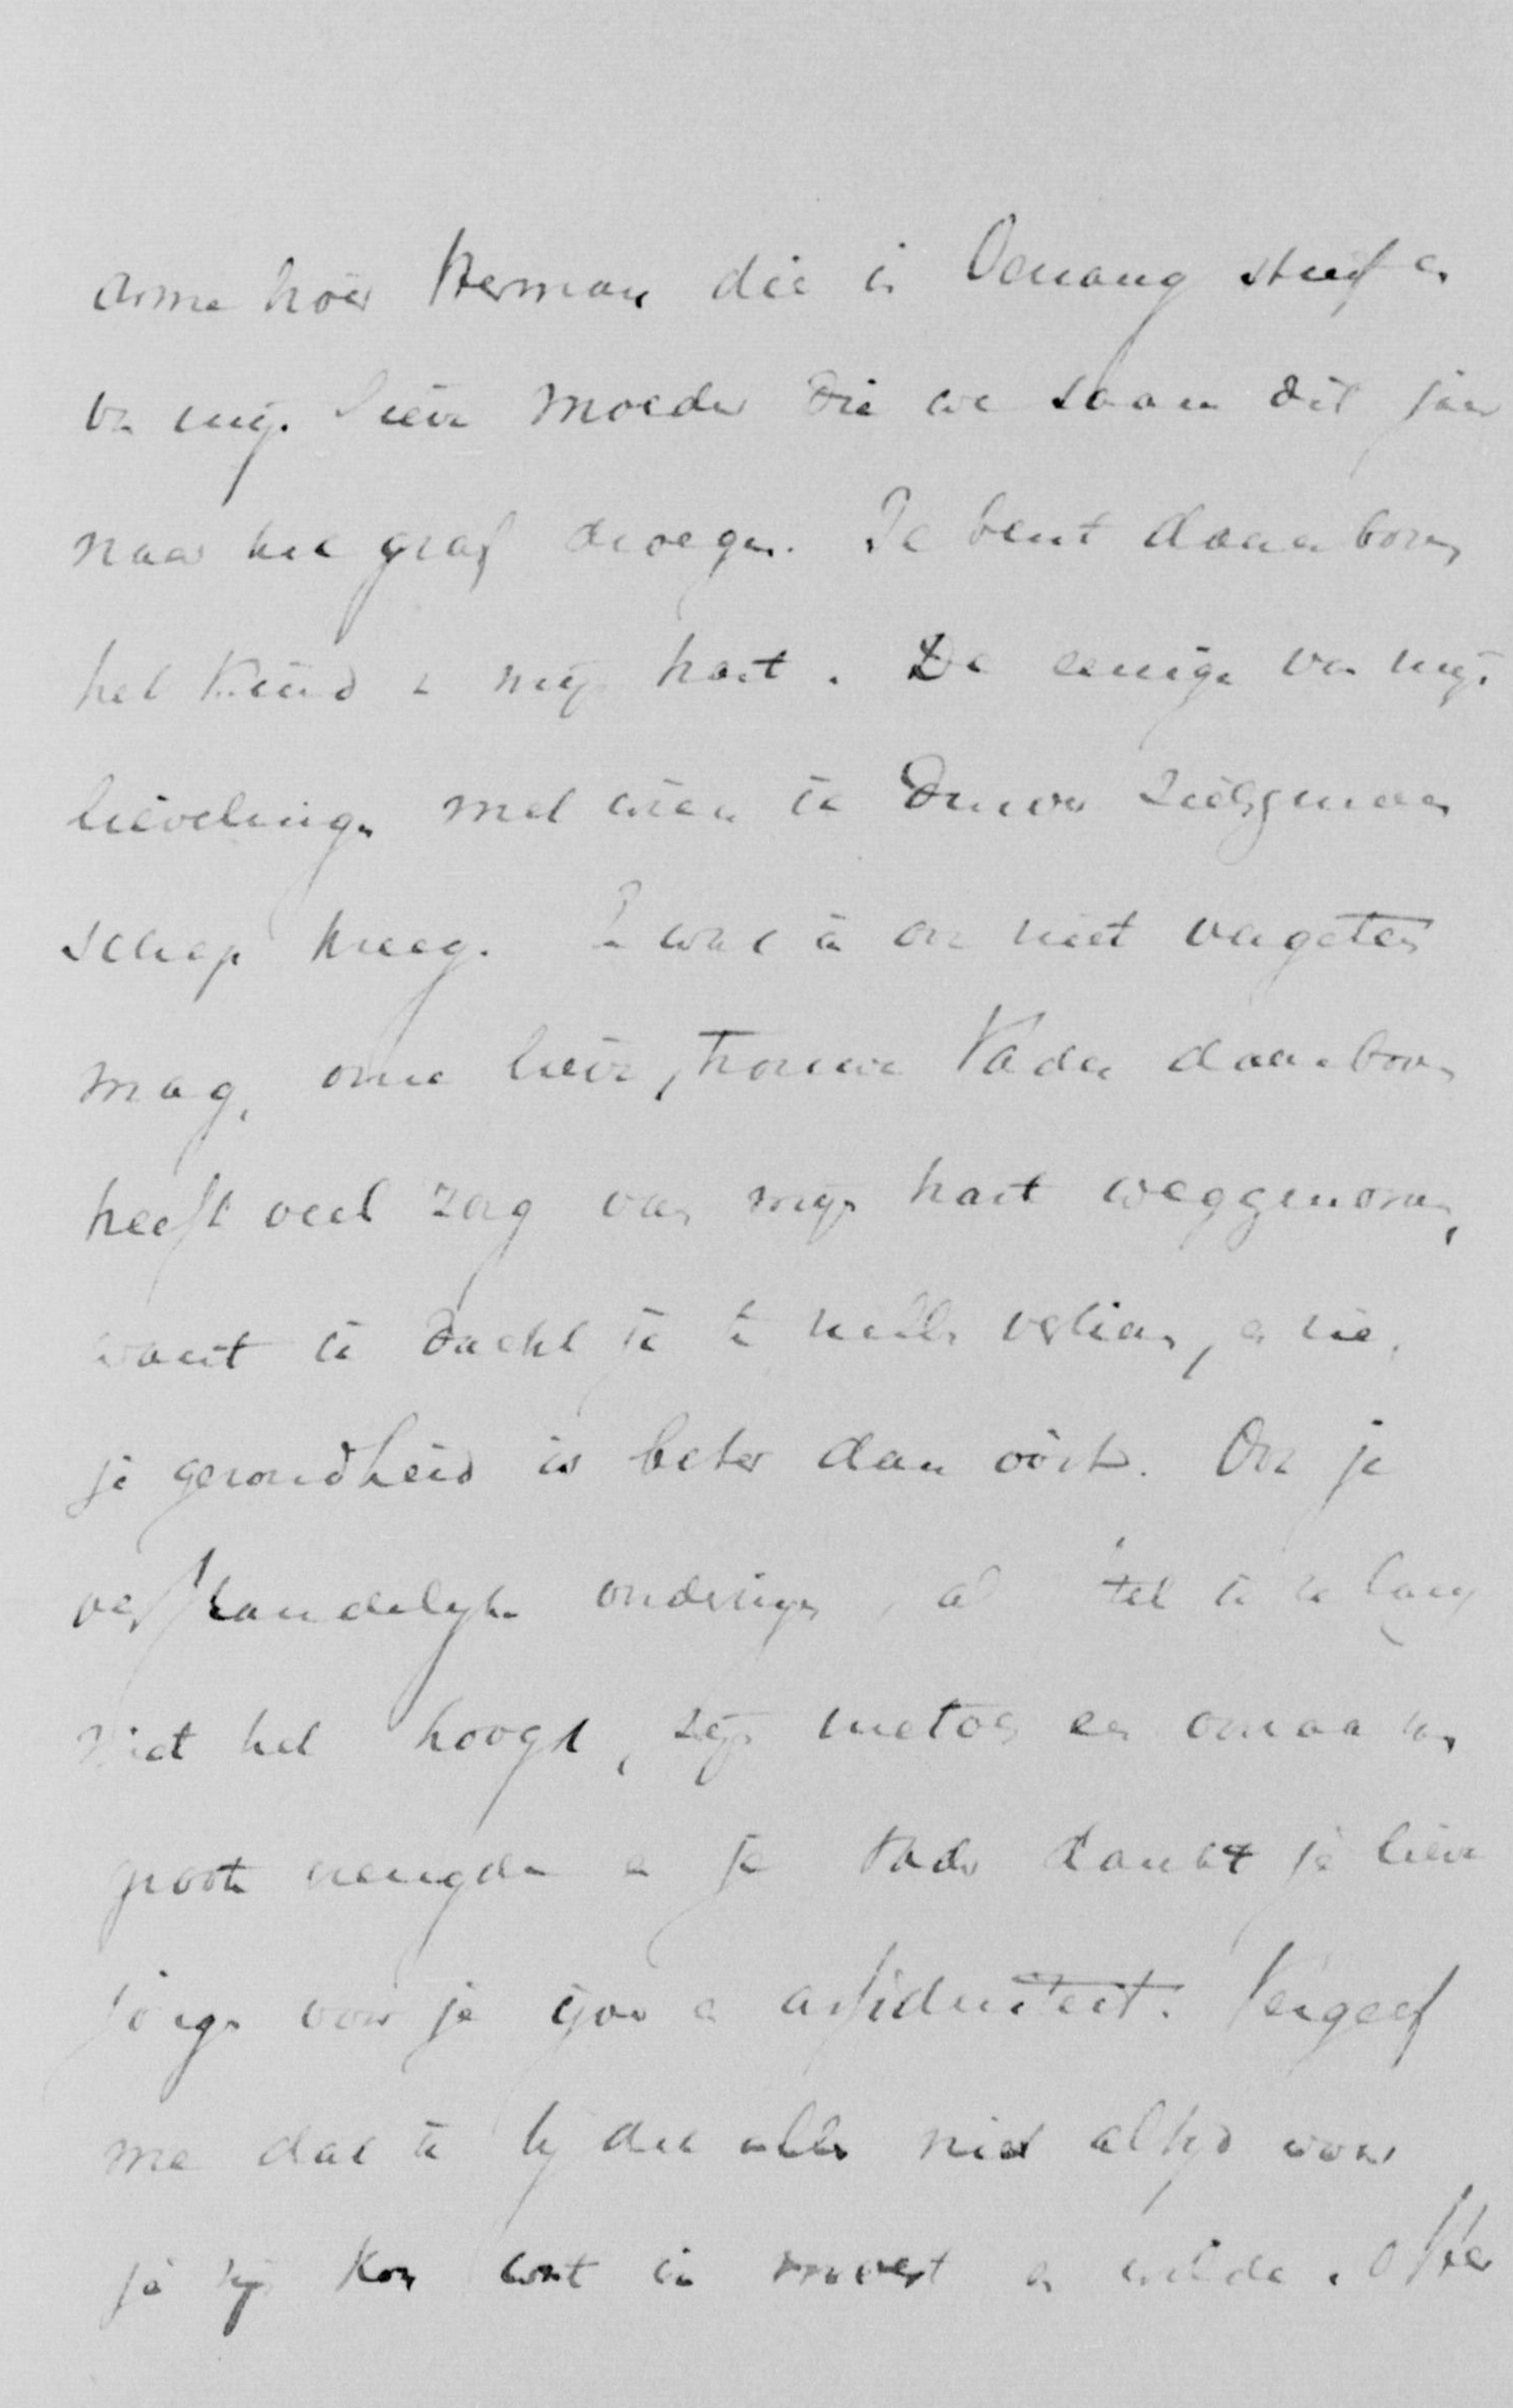 arme broer Herman die in Penang stierf en
van mijn lieve moeder die we saam dit jaar
naar het graf droegen. Je bent daarboven
het kind van mijn hart. De eenige van mijn
lievelingen met wien ik zielsgemeen
schap kreeg. En wat ik ook niet vergeten
mag, onze lieve, trouwe Vader daarboven
heeft veel zorg van mijn hart weggenomen,
want ik dacht je te zullen verliezen, en zie,
je gezondheid is beter dan ooit. Ook je
verstandelijke vorderingen, al tel ik ze lang
niet het hoogst, zijn me toch een oorzaak van
groote vreugde en je Vader dankt je lieve
jongen voor je ijver en assiduiteit. Vergeef
me dat ik bij dat alles niet altijd voor
je zijn kon wat ik moest en wilde.